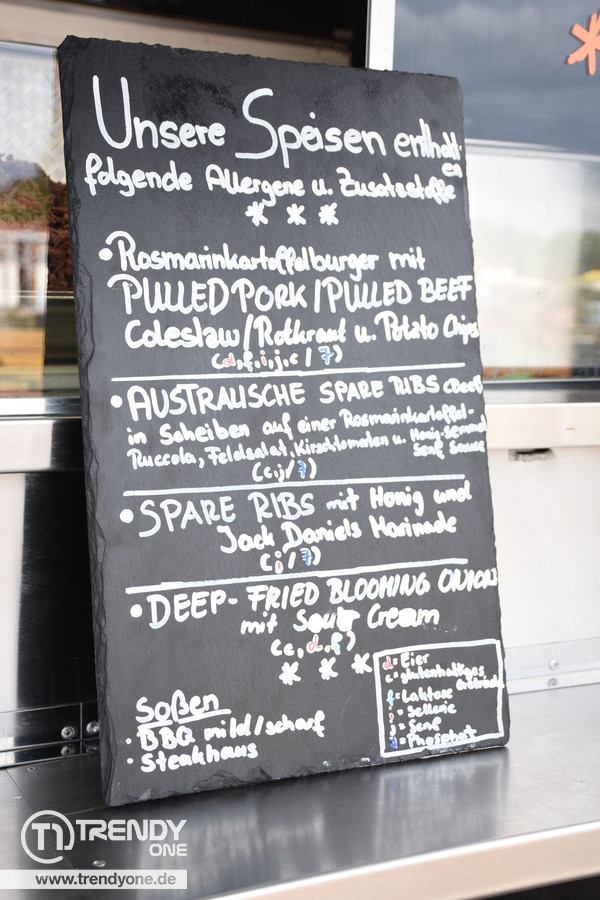 Unsere Speisen enthalt-
en
folgende Allergene u. Zusatzstoffe
* * *
• Rosmarinkartoffelburger mit
PULLED PORK / PULLED BEEF
Coleslaw / Rotkraut u. Potato Chips
(d,f,i,j,c / 7)
• AUSTRALISCHE SPARE RIBS (Beef)
in Scheiben auf einer Rosmarinkartoffel-
Ruccola, Feldsalat, Kirschtomaten u. Honig-
Senf Sauce
(c,j / 7)
• SPARE RIBS mit Honig und
Jack Daniels Marinade
(j / 7)
• DEEP-FRIED BLOOMING ONIONS
mit Sour Cream
(c,d,f)
* * *
d = Eier
c = glutenhaltiges
Getreide
f = Laktose
i = Sellerie
j = Senf
7 = Phosphat
Soßen
• BBQ mild/scharf
• Steakhaus
TRENDY
ONE
www.trendyone.de